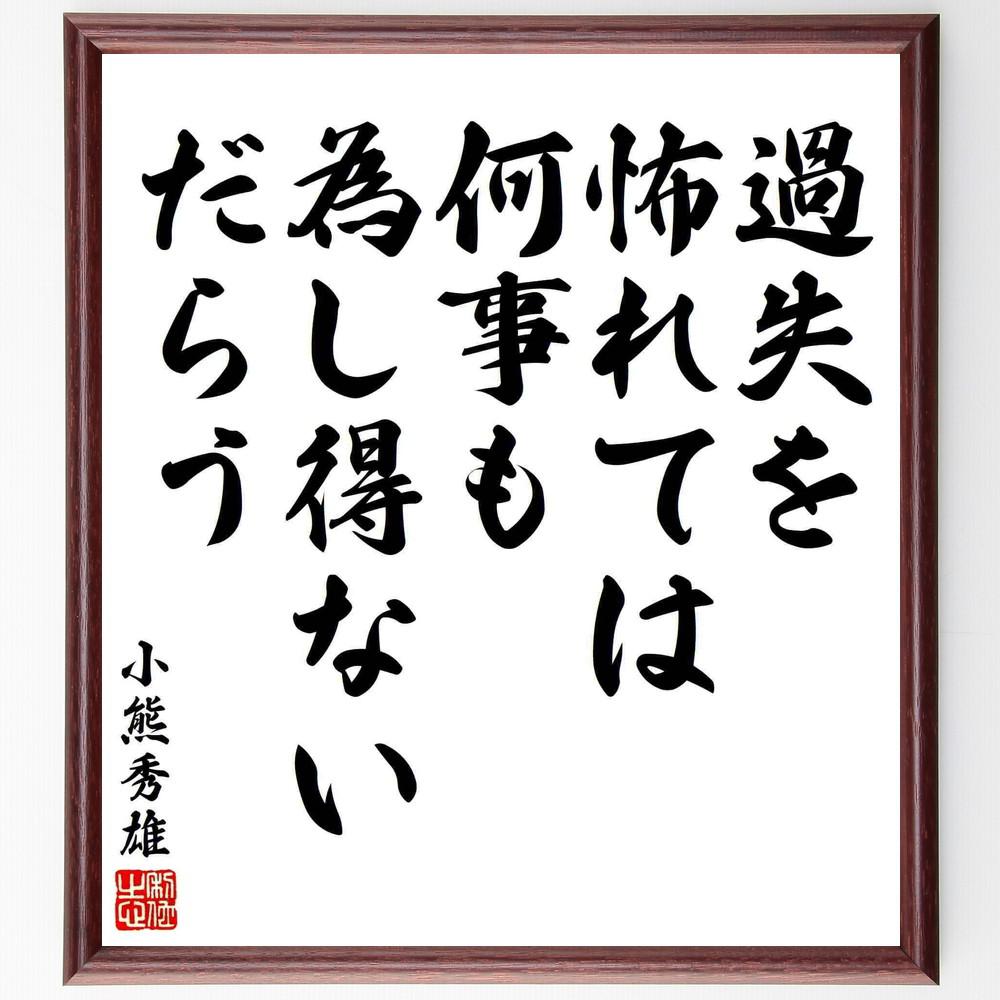 過失を
怖れては
何事も
為し得ない
だらう
小熊秀雄